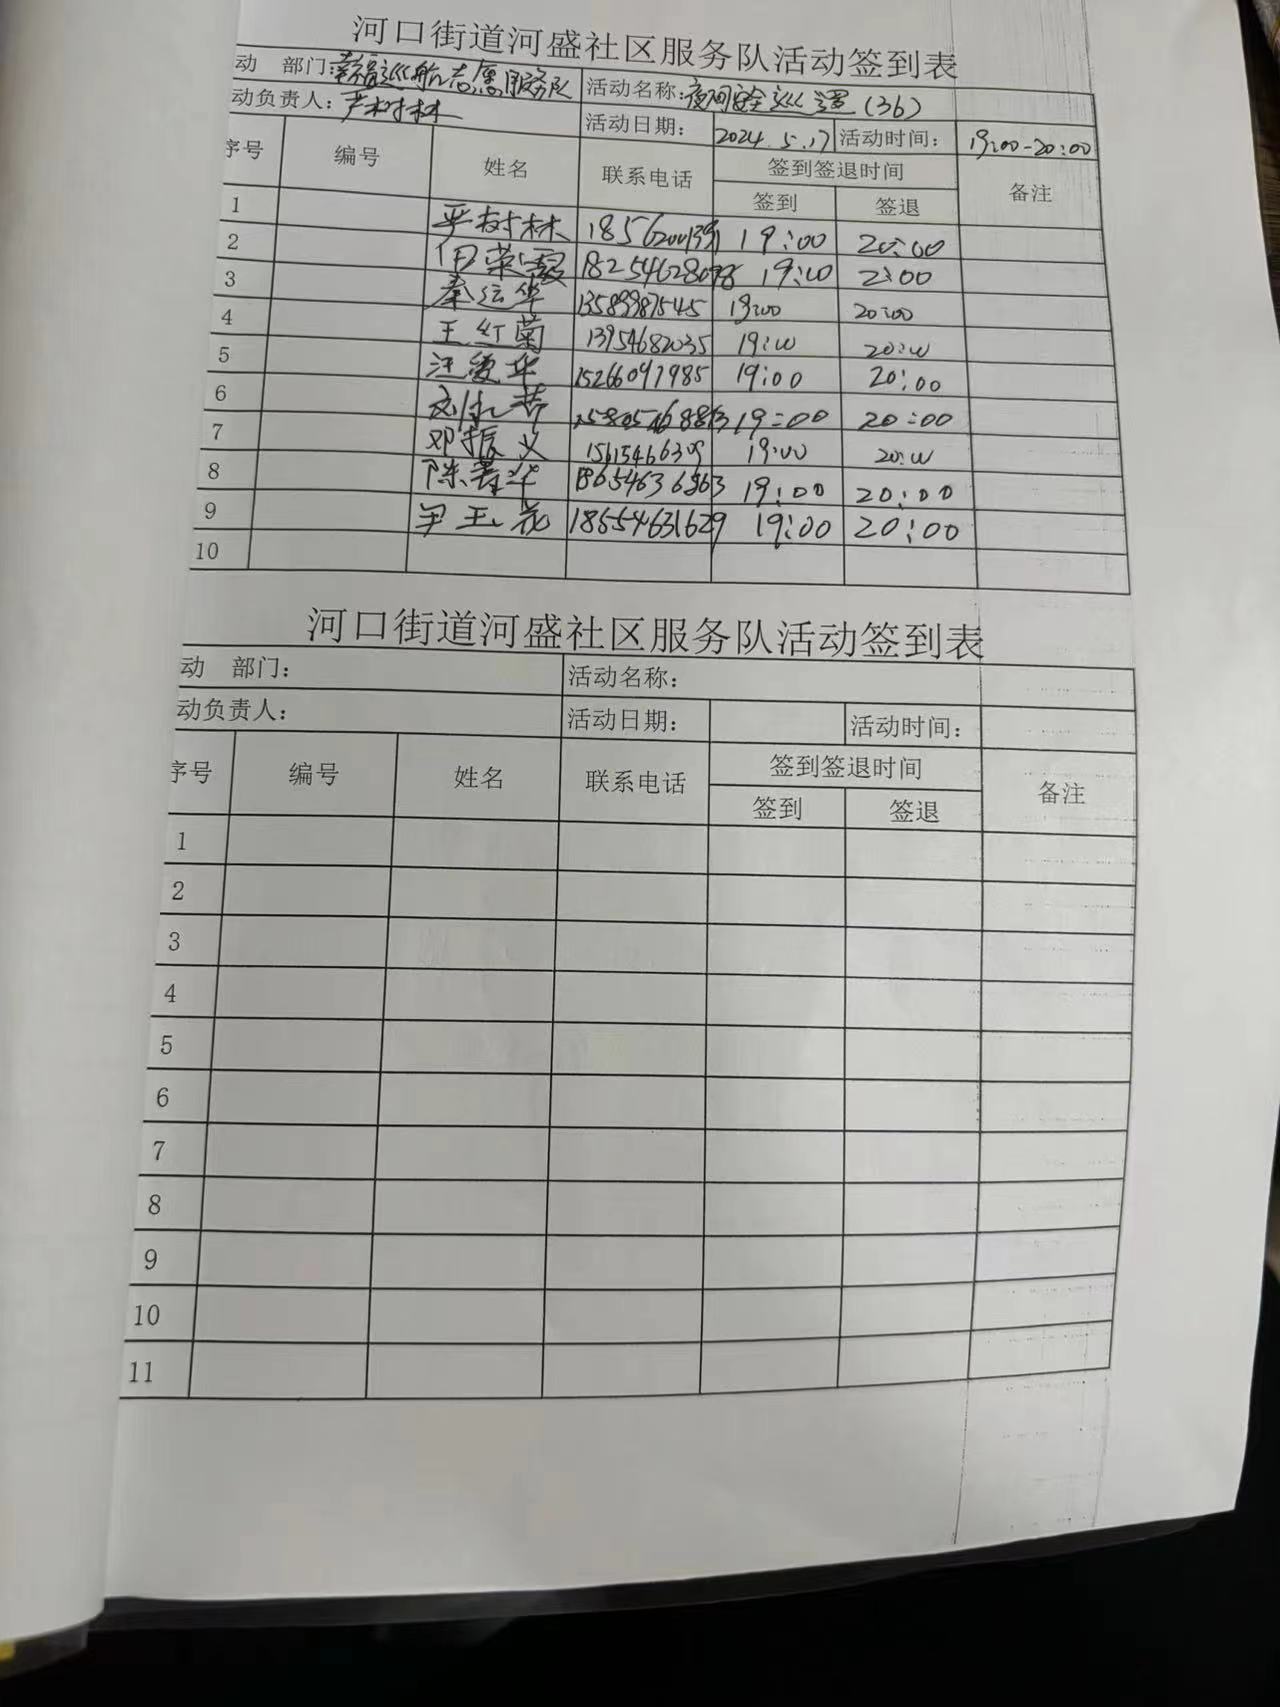 河口街道河盛社区服务队活动签到表
动 部门: 巡航志愿服务队 活动名称: 夜间安全巡逻(36)
动负责人: 严树林 活动日期: 2024.5.17 活动时间: 19:00-20:00
序号 编号 姓名 联系电话 签到签退时间 备注
签到 签退
1 严树林 19:00 20:00
2 18254628078 19:00 2:00
3 秦运华 13589987545 19:00 20:00
4 王红菊 13954682035 19:00 20:00
5 汪爱华 15266097985 19:00 20:00
6 19:00 20:00
7 邓振义 15615466309 19:00 20:00
8 陈春华 19:00 20:00
9 尹玉花 18554631629 19:00 20:00
10
河口街道河盛社区服务队活动签到表
动 部门: 活动名称:
动负责人: 活动日期: 活动时间:
序号 编号 姓名 联系电话 签到签退时间 备注
签到 签退
1
2
3
4
5
6
7
8
9
10
11